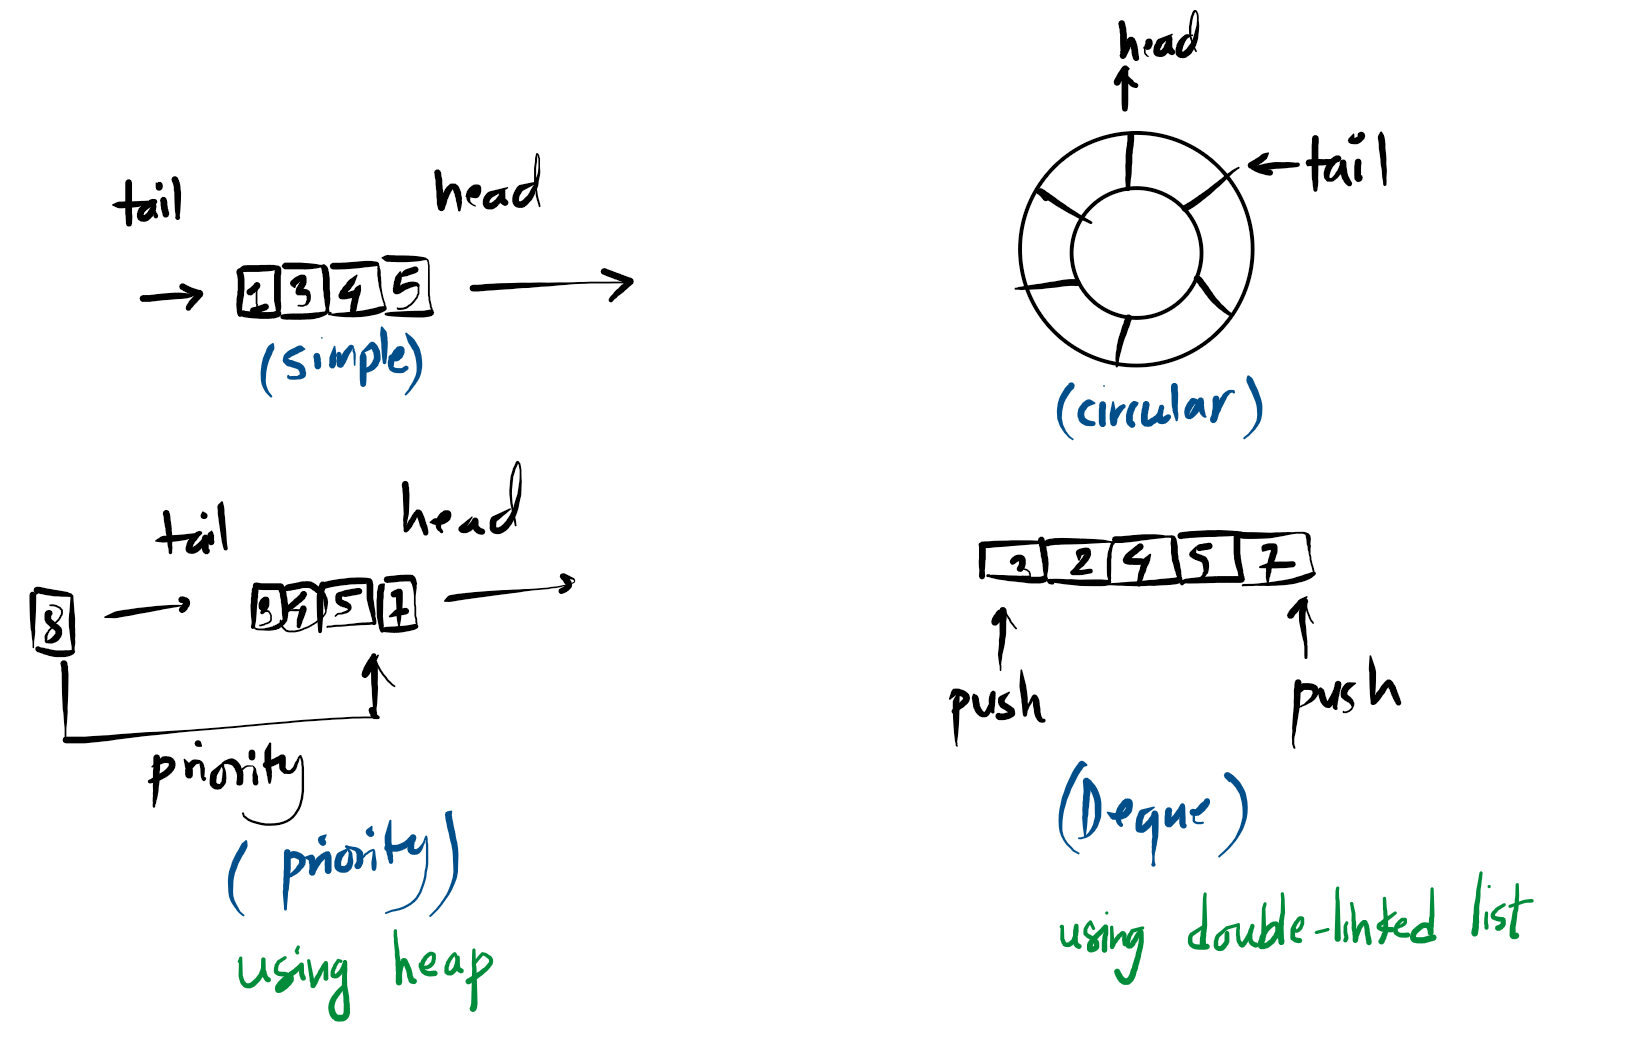 tail head
1 3 4 5
(simple)
head
tail
(circular)
tail head
8 3 4 5 7
priority
(priority)
using heap
3 2 4 5 7
push push
(Deque)
using double-linked list